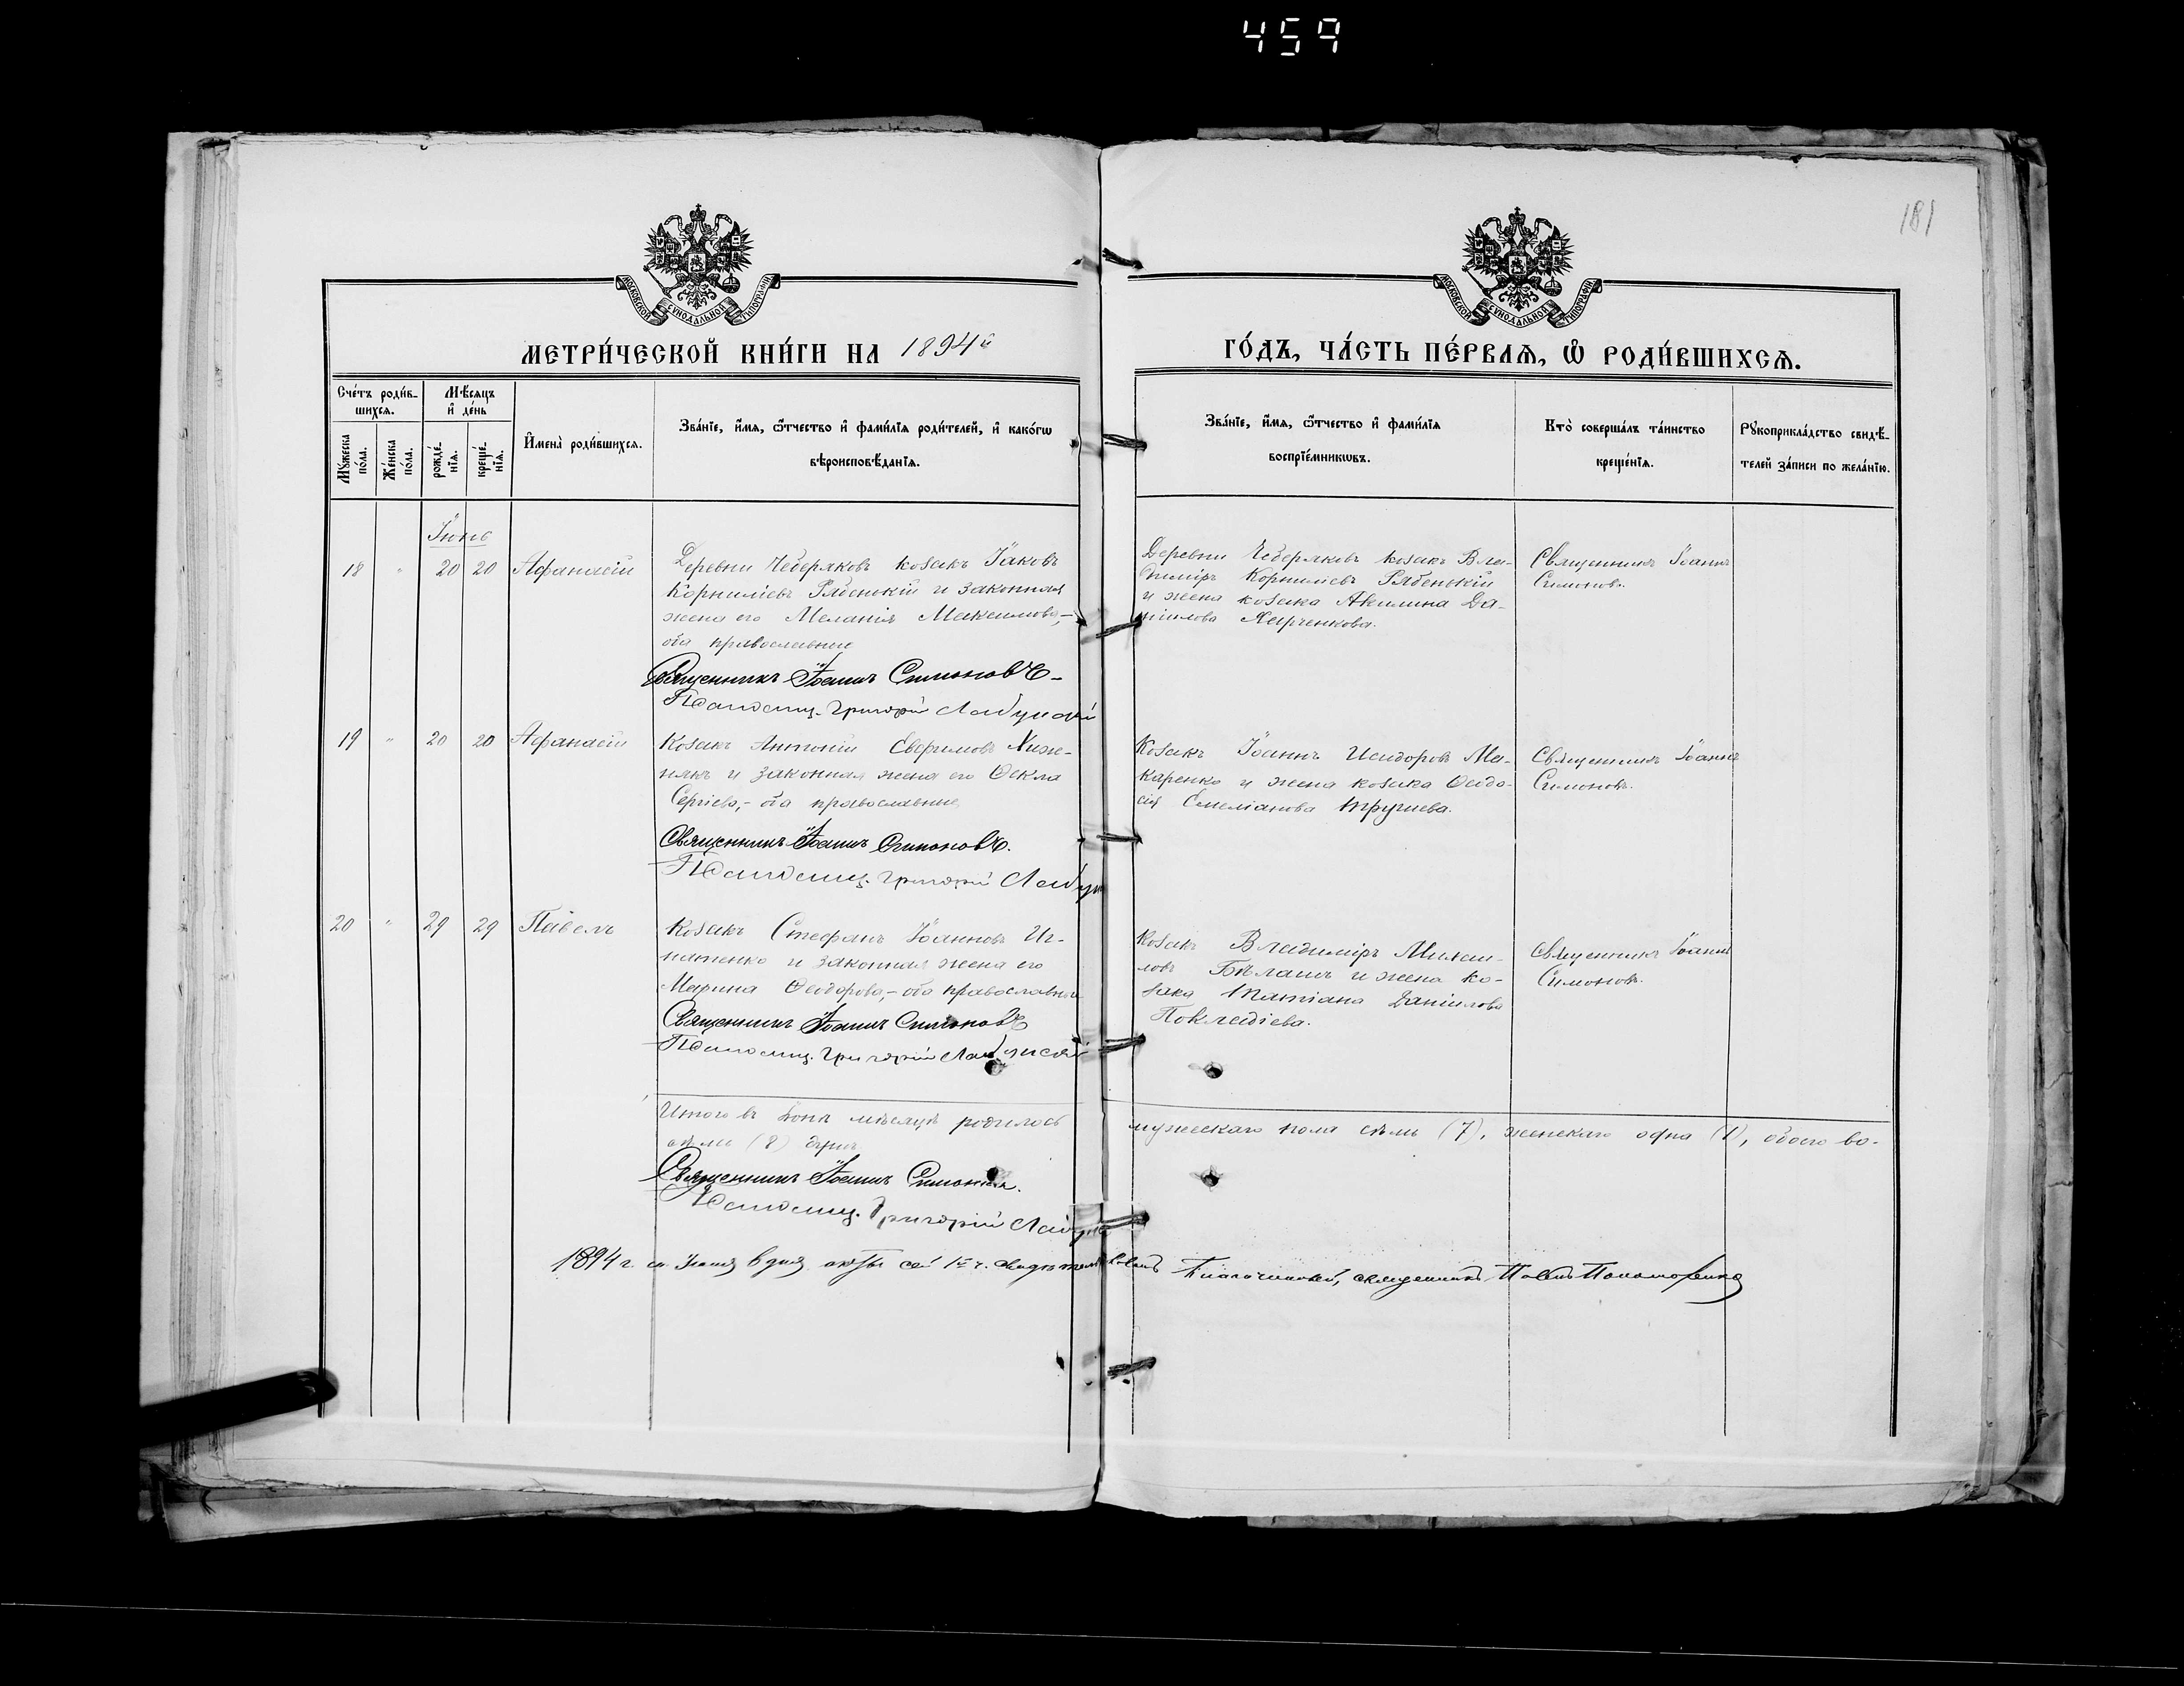 459
181
МОСКОВСКОЙ СУНОДАЛЬНОЙ ТИПОГРАФІИ
МОСКОВСКОЙ СУНОДАЛЬНОЙ ТИПОГРАФІИ
МЕТРИ́ЧЕСКОЙ КНИ́ГИ НА 1894й
ГО́ДЪ, ЧА́СТЬ ПЕ́РВАѦ, Ѡ҆ РОДИ́ВШИХСѦ.
Сче́тъ роди́в-
шихсѧ.
Мꙋ́жеска
по́ла.
Же́нска
по́ла.
Мѣ́сѧцъ
и҆ де́нь
рожде́-
нїѧ.
креще́-
нїѧ.
И҆мена̀ роди́вшихсѧ.
Зва́нїе, и҆́мѧ, ѻ҆́тчество и҆ фами́лїѧ роди́телей, и҆ како́гѡ
вѣроисповѣ́данїѧ.
Зва́нїе, и҆́мѧ, ѻ҆́тчество и҆ фами́лїѧ
воспрїе́мникѡвъ.
Кто̀ соверша́лъ та́инство
креще́нїѧ.
Рꙋкоприкла́дство свидѣ́-
телей за́писи по жела́нїю.
Іюнь
18 " 20 20 Афанасій
Деревни Чеберяковъ козакъ Іаковъ
Корниліевъ Рябенькій и законная
жена его Меланія Максимова,-
оба православные
Священникъ Іоаннъ Симоновъ
Псаломщ. Григорій
Деревни Чеберяковъ козакъ Вла-
диміръ Корниліевъ Рябенькій
и жена козака Акилина Да-
ніилова Харченкова.
Священникъ Іоаннъ
Симоновъ.
19 " 20 20 Афанасій
Козакъ Антоній Евфимовъ Хиж-
някъ и законная жена его Ѳекла
Сергіева,- оба православные
Священникъ Іоаннъ Симоновъ.
Псаломщ. Григорій
Козакъ Іоаннъ Исидоровъ Ма-
каренко и жена козака Ѳеодо-
сія Емеліанова
Священникъ Іоаннъ
Симоновъ.
20 " 29 29 Павелъ
Козакъ Стефанъ Іоанновъ Иг-
натенко и законная жена его
Марина Ѳеодорова,- оба православные
Священникъ Іоаннъ Симоновъ
Псаломщ. Григорій
Козакъ Владиміръ Михаи-
ловъ Бѣлашъ и жена ко-
зака Татіана Даніилова
Священникъ Іоаннъ
Симоновъ.
Итого въ Іюнѣ мѣсяцѣ родилось
мужескаго пола семь (7), женскаго одна (1), обоего во-
семь (8) душъ
Священникъ Іоаннъ Симоновъ.
Псаломщ. Григорій
1894 г.
Благочинный, священникъ Павелъ Пономаренко